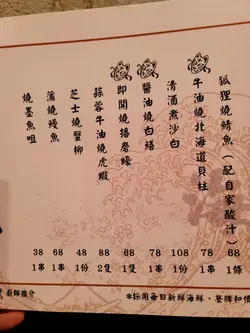 狐狸燒鯖魚(配自家酸汁) 68 1條
牛油燒北海道貝柱 78 1串
清酒煮沙白 108 1份
醬油燒白鱔 78 1串
即開燒播磨蠔 68 1隻
蒜蓉牛油燒虎蝦 88 2隻
芝士燒蟹柳 48 1份
蒲燒鰻魚 68 1串
燒墨魚咀 38 1串
廚師推介
*採用每日新鮮海鮮、餐牌和價